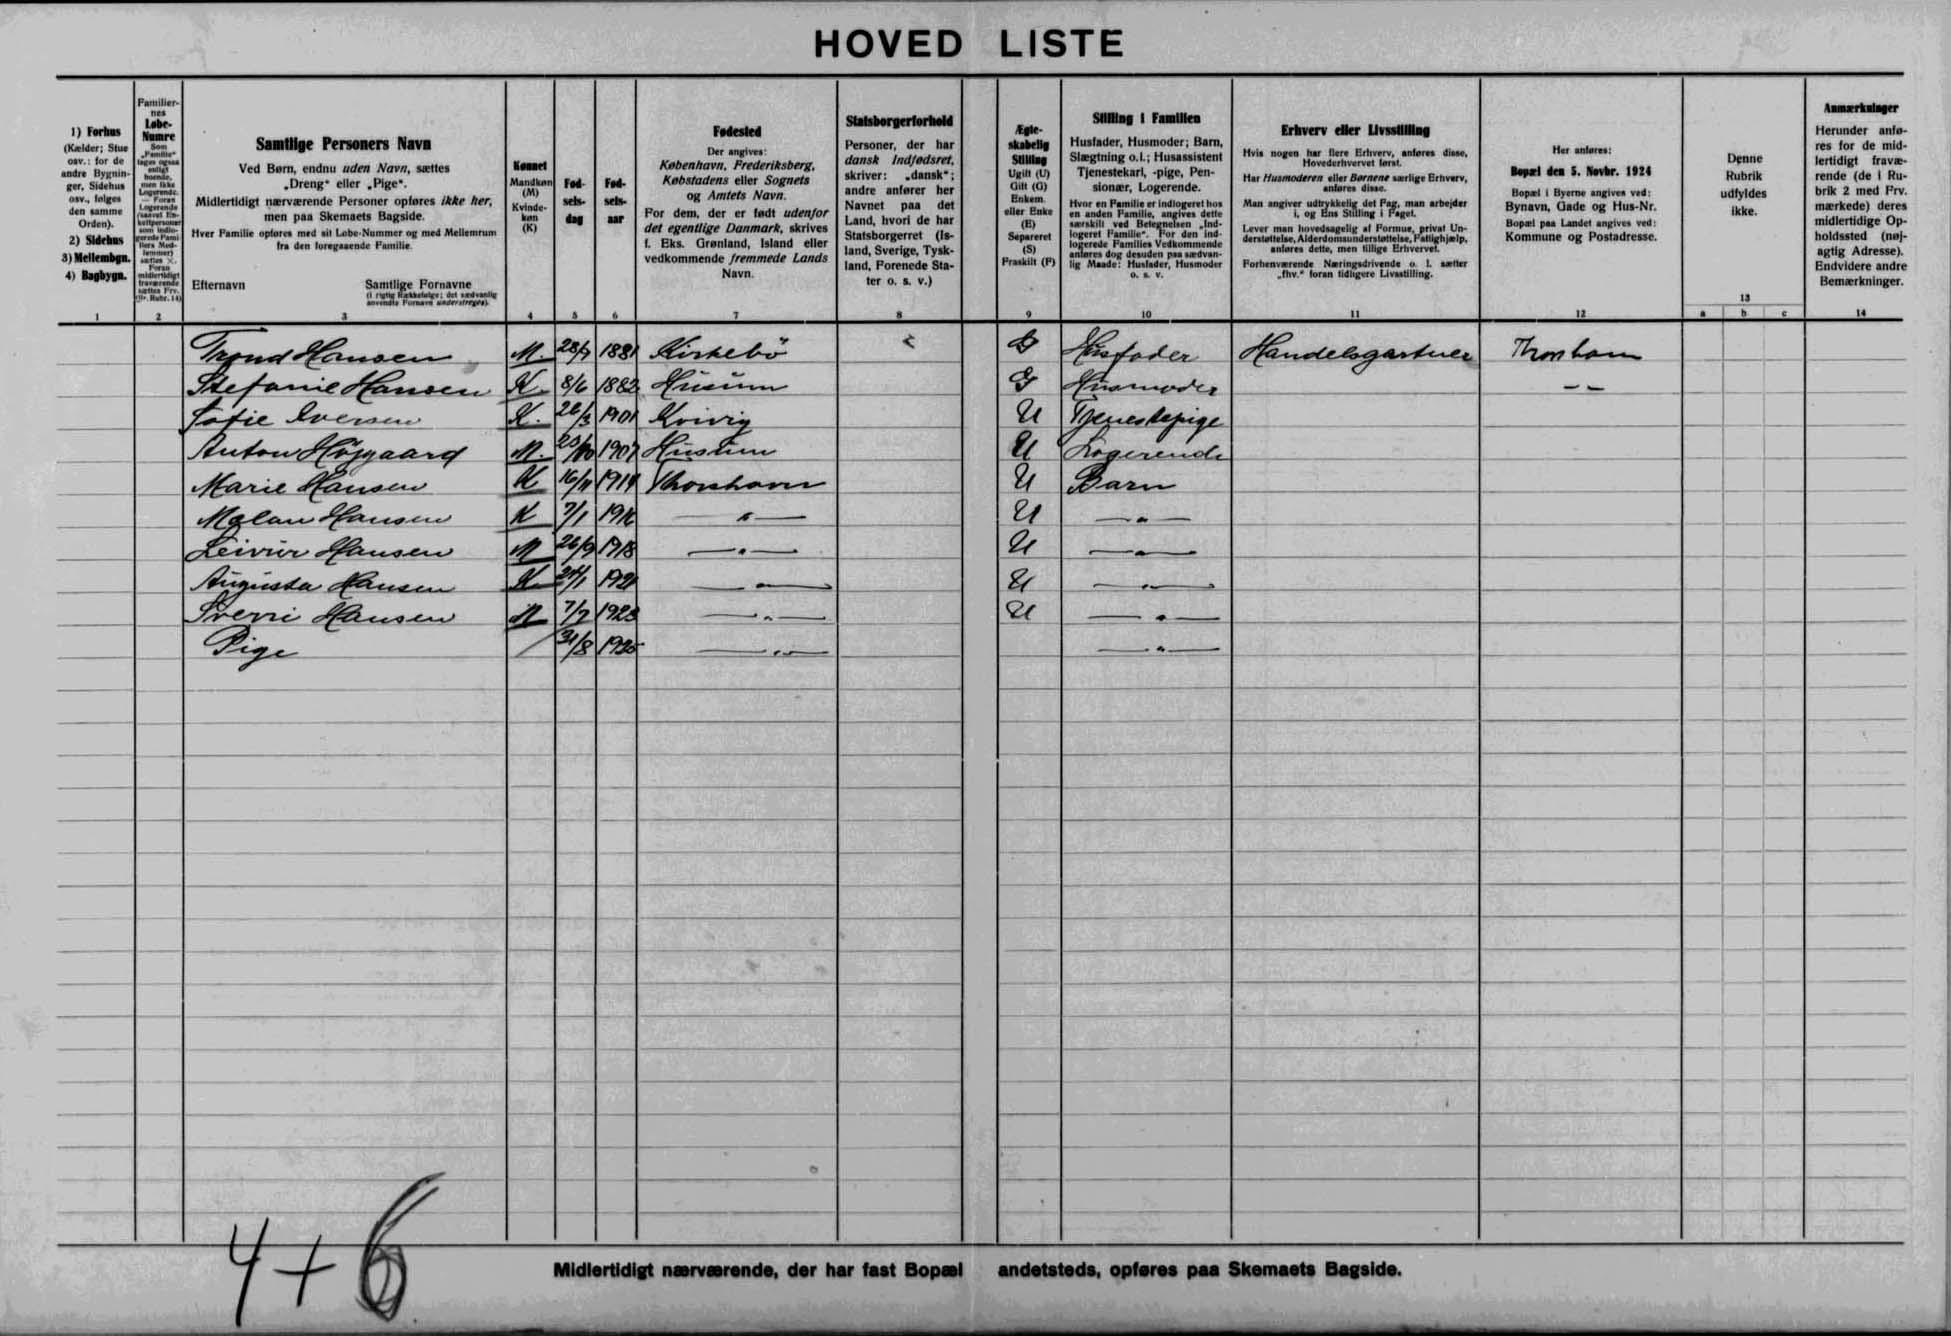 HOVED LISTE
1) Forhus
(Kælder; Stue
osv.: for de
andre Bygnin-
ger, Sidehus
osv., følges
den samme
Orden).
2) Sidehus
3) Mellembgn.
4) Bagbygn.
1
Familier-
nes
Løbe-
Numre
Som
„Familie"
tages ogsaa
enligt
boende,
men ikke
Logerende.
— Foran
Logerende
2
Samtlige Personers Navn
Ved Børn, endnu uden Navn, sættes
„Dreng" eller „Pige".
Midlertidigt nærværende Personer opføres ikke her,
men paa Skemaets Bagside.
Hver Familie opføres med sit Løbe-Nummer og med Mellemrum
fra den foregaaende Familie.
Efternavn Samtlige Fornavne
(i rigtig Rækkefølge; det sædvanlig
anvendte Fornavn understreges).
3
Kønnet
Mandkøn
(M)
Kvinde-
køn
(K)
4
Fød-
sels-
dag
5
Fød-
sels-
aar
6
Fødested
Der angives:
København, Frederiksberg,
Købstadens eller Sognets
og Amtets Navn.
For dem, der er født udenfor
det egentlige Danmark, skrives
f. Eks. Grønland, Island eller
vedkommende fremmede Lands
Navn.
7
Statsborgerforhold
Personer, der har
dansk Indfødsret,
skriver: „dansk";
andre anfører her
Navnet paa det
Land, hvori de har
Statsborgerret (Is-
land, Sverige, Tysk-
land, Forenede Sta-
ter o. s. v.)
8
Ægte-
skabelig
Stilling
Ugift (U)
Gift (G)
Enkem.
eller Enke
(E)
Separeret
(S)
Fraskilt (F)
9
Stilling i Familien
Husfader, Husmoder; Barn,
Slægtning o.l.; Husassistent
Tjenestekarl, -pige, Pen-
sionær, Logerende.
Hvor en Familie er indlogeret hos
en anden Familie, angives dette
særskilt ved Betegnelsen „Ind-
logeret Familie". For den ind-
logerede Families Vedkommende
anføres dog desuden paa sædvan-
lig Maade: Husfader, Husmoder
o. s. v.
10
Erhverv eller Livsstilling
Hvis nogen har flere Erhverv, anføres disse,
Hovederhvervet først.
Har Husmoderen eller Børnene særlige Erhverv,
anføres disse.
Man angiver udtrykkelig det Fag, man arbejder
i, og Ens Stilling i Faget.
Lever man hovedsagelig af Formue, privat Un-
derstøttelse, Alderdomsunderstøttelse, Fattighjælp,
anføres dette, men tillige Erhvervet.
Forhenværende Næringsdrivende o. l. sætter
„fhv." foran tidligere Livsstilling.
11
Her anføres:
Bopæl den 5. Novbr. 1924
Bopæl i Byerne angives ved:
Bynavn, Gade og Hus-Nr.
Bopæl paa Landet angives ved:
Kommune og Postadresse.
12
Denne
Rubrik
udfyldes
ikke.
13
a b c
Anmærkninger
Herunder anfø-
res for de mid-
lertidigt fravæ-
rende (de i Ru-
brik 2 med Frv.
mærkede) deres
midlertidige Op-
holdssted (nøj-
agtig Adresse).
Endvidere andre
Bemærkninger.
14
Trond Hansen M. 28/9 1881 Kirkebö G Husfader Handelsgartner Thorshavn
Stefanie Hansen K 8/6 1882 Husum G Husmoder — —
Sofie Iversen K. 26/3 1901 Kvivig U Tjenestepige
Anton Højgaard M. 1907 Husum U Logerende
Marie Hansen K 16/11 Thorshavn U Barn
Malan Hansen K 7/1 1916 —"— U —"—
Leivur Hansen M 26/9 1918 —"— U —"—
Augusta Hansen K 1921 —"— U —"—
Sverri Hansen M 7/7 1923 —"— U —"—
Pige / 31/8 1925 —"— —"—
4+6
Midlertidigt nærværende, der har fast Bopæl andetsteds, opføres paa Skemaets Bagside.